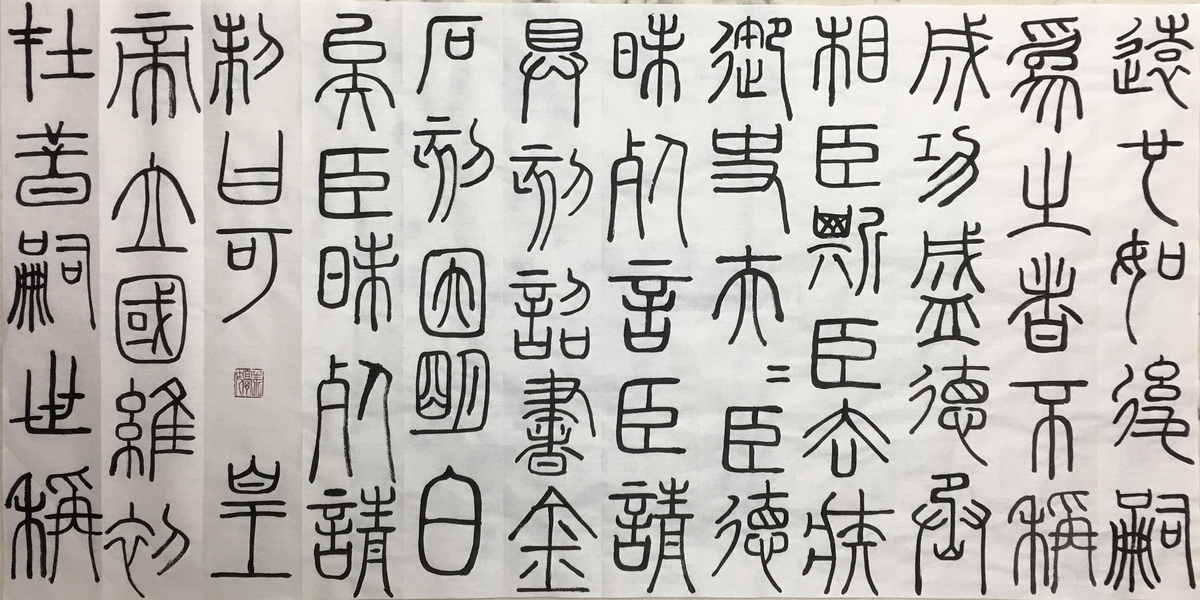 遠也如後嗣
爲之者不稱
成功盛德丞
相臣斯臣去疾
御史夫=臣德
昧死言臣請
具刻詔書金
石刻因明白
矣臣昧死請
制曰可 皇
帝立國維初
在昔嗣世稱